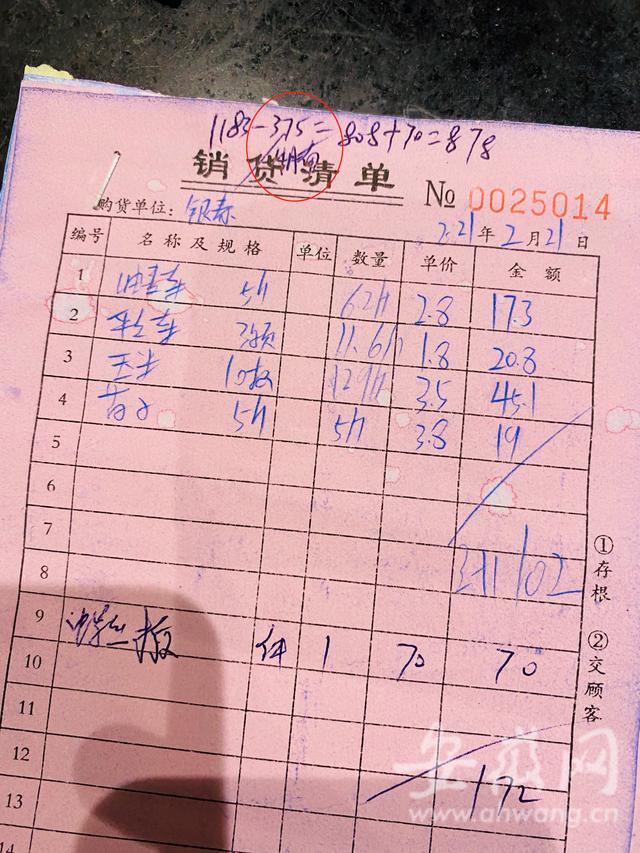 1183-375=808+70=878
销货清单
№ 0025014
购货单位:
2.21年2月21日
编号 名称及规格 单位 数量 单价 金额
1 5斤 6.2斤 2.8 17.3
2 3颗 11.6斤 1.8 20.8
3 玉米 10枚 12.9斤 3.5 45.1
4 5斤 5斤 3.8 19
5
6
7
8 102
9
10 件 1 70 70
11
12
13 172
14
①存根
②交顾客
安徽网
www.ahwang.cn